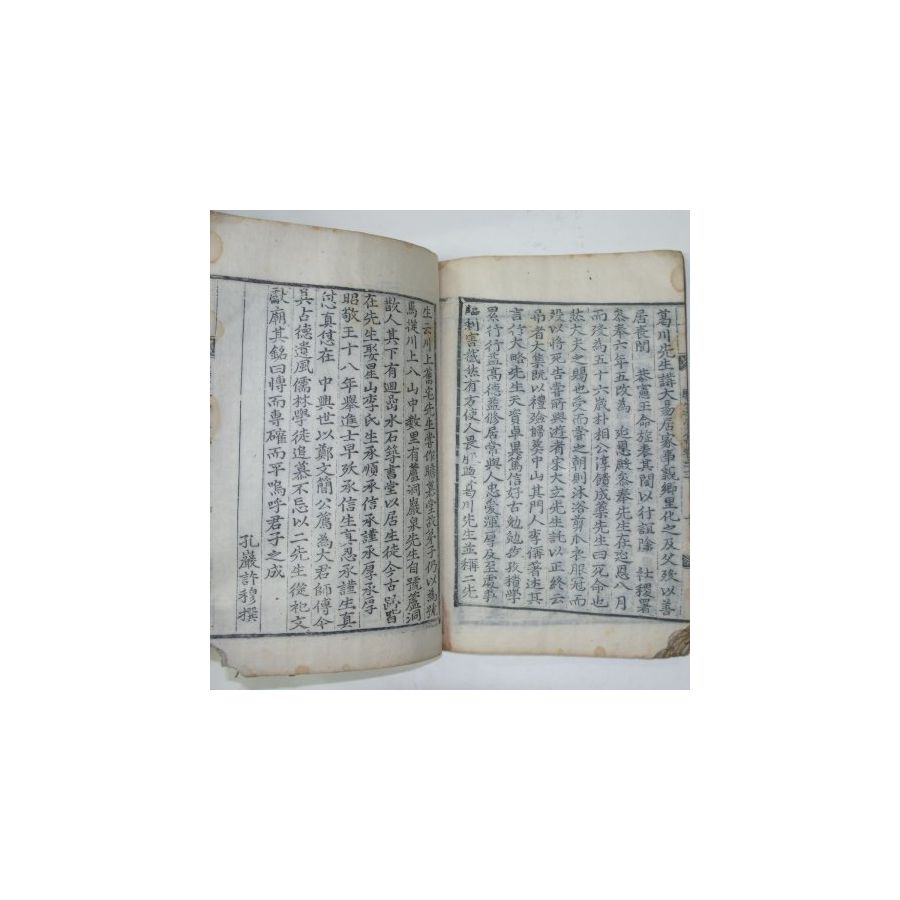 葛川先生講大易居家事親鄉里化之及父歿以善
居喪聞 恭憲王命㫌表其閭以行誼除 社稷署
參奉六年五改為 迨恩殿參奉先生在迨恩八月
而歿為五十六歲朴相公淳饋成藥先生曰死命也
然大夫之賜也受而嘗之朝則沐浴剪爪衣服冠而
歿以將死告嘗所與遊者宋大立先生託以正終云
弔者大集旣以禮殮歸葬中山其門人 稱著述其
言行大略先生天資卓異篤信好古勉勉步孜積學
累行行益高德益修居常與人忠愛渾厚及至處事
臨利害截然有方使人畏服 葛川先生並稱二先
生云川上舊宅先生嘗作瞻慕堂 弟子仍以為號
焉從川上入山中數里有蘆洞巖泉先生自號蘆洞
散人其下有迴嵒水石築書堂以居生徒今古 皆
在先生娶星山李氏生承順承信承謹承厚承厚
昭敬王十八年舉進士早歿承信生真忍承謹生真
愆真恷在 中興世以鄭文簡公薦為大君師傅今
其占德遺風儒林學徒追慕不忘以二先生從祀文
獻廟其銘曰慱而專確而平嗚呼君子之成
孔巖許穆撰